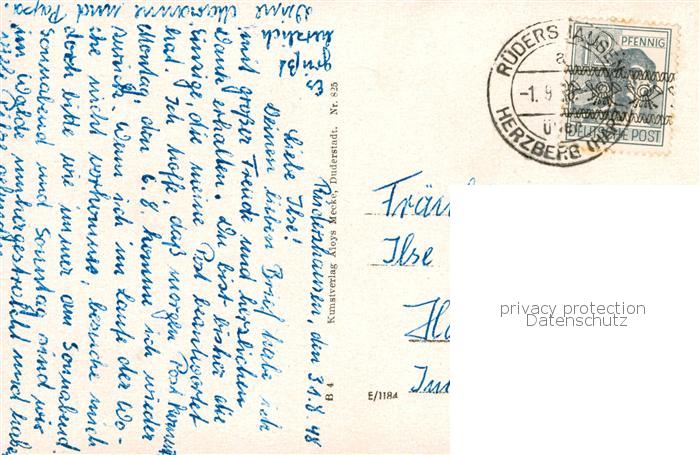 Rüdershausen, den 31.8.48
Liebe Ilse!
Deinen lieben Brief habe ich
mit großer Freude und herzlichem
Dank erhalten. Du bist bisher die
Einzige, die meine Post beantwortet
hat. Ich hoffe, daß morgen Post kommt.
Montag, den 6.9. komme ich wieder
zurück. Wenn ich im Laufe der Wo-
che nicht vorkomme, besuche mich
doch bitte wie immer am Sonnabend.
Sonnabend und Sonntag sind wir
im Walde umhergestreift und
Es
grüßt
herzlich
Deine Marianne und Papa.
B 4 Kunstverlag Aloys Mecke, Duderstadt. Nr. 825
E/1184
RÜDERSHAUSEN
a
-1.9
über
HERZBERG
PFENNIG
DEUTSCHE POST
Ilse
privacy protection
Datenschutz